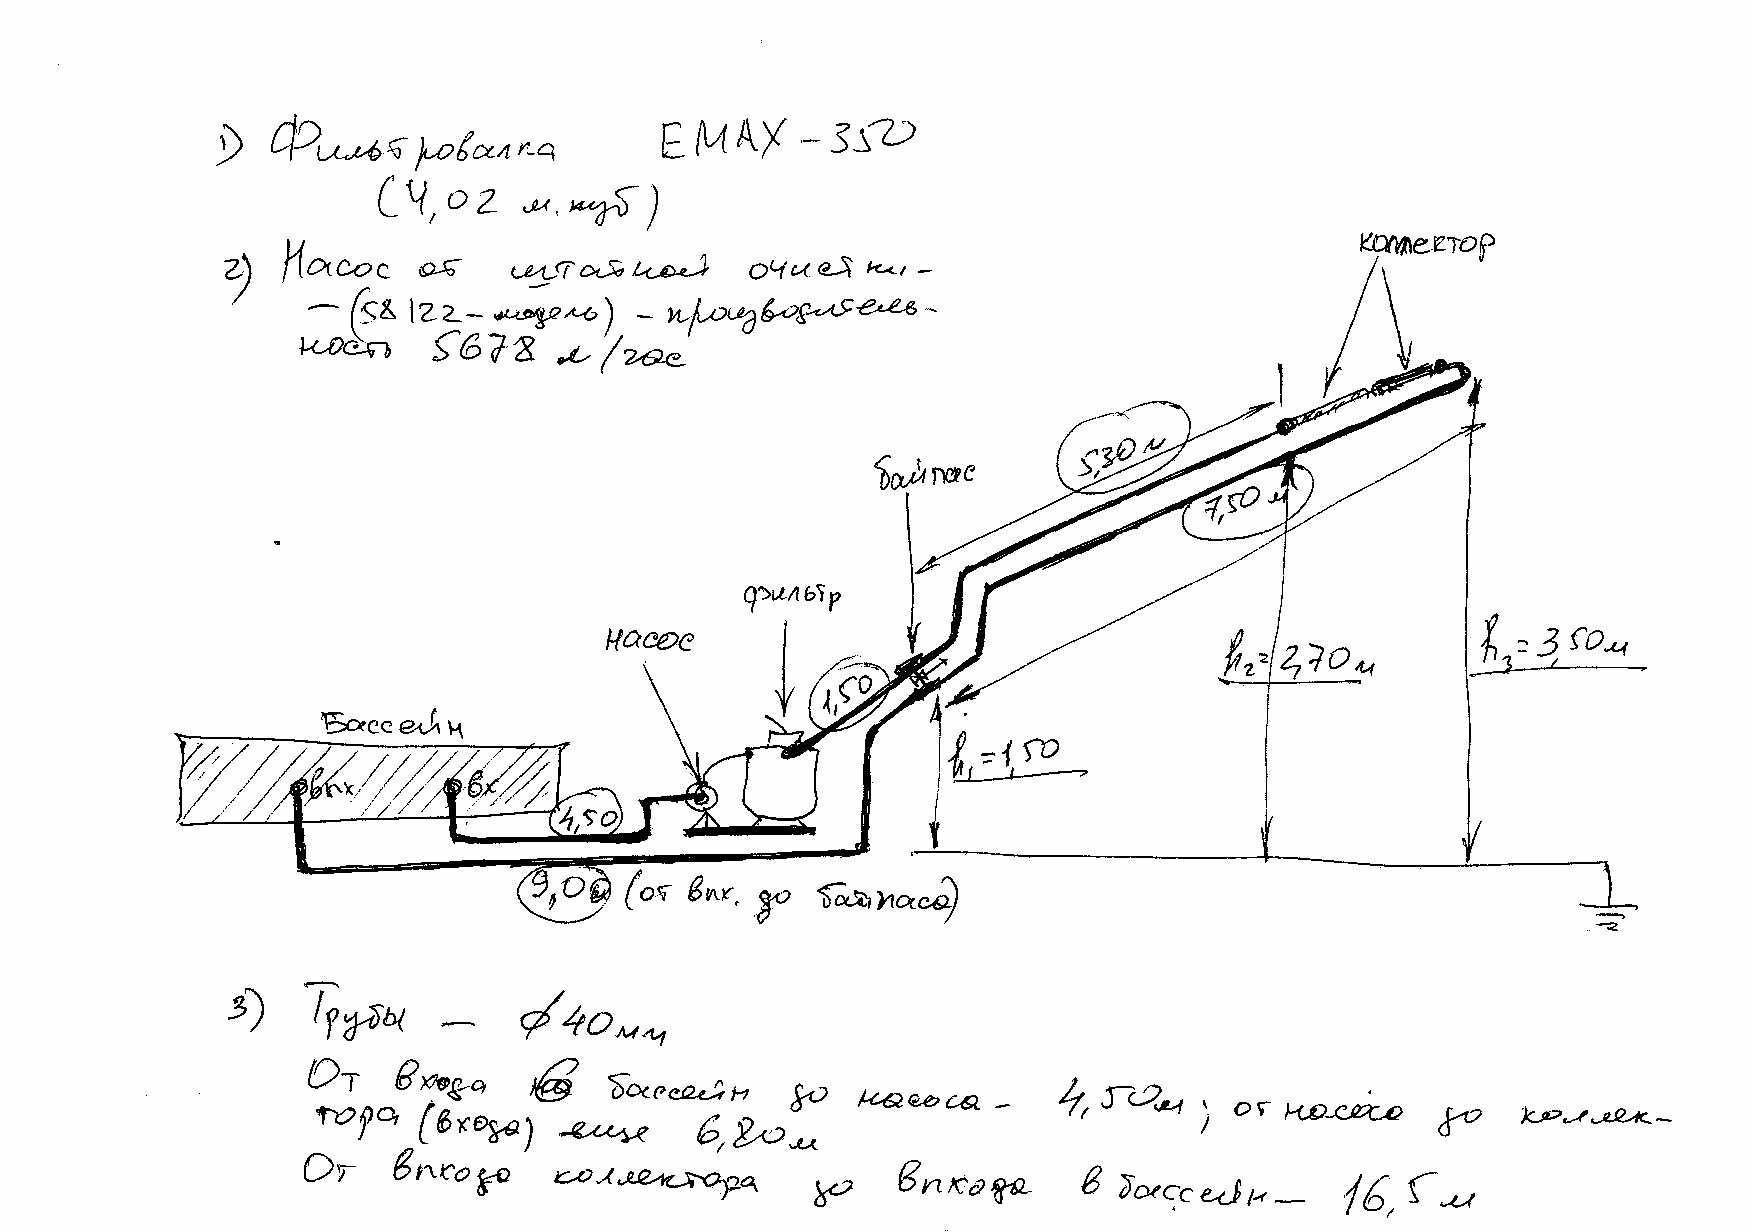 1) Фильтровалка EMAX-350
(4,02 м.куб)
2) Насос от штатной очистки -
- (58122-модель) - производитель-
ность 5678 л/час
коллектор
5,30 м
байпас
7,50 м
фильтр
насос
1,50
h₂=2,70м
h₃=3,50м
Бассейн
h₁=1,50
вых
вх
4,50
9,00 (от вых. до байпаса)
3) Трубы - ф40мм
От входа в бассейн до насоса - 4,50м; от насоса до коллек-
тора (входа) еще 6,80м
От выхода коллектора до выхода в бассейн - 16,5 м